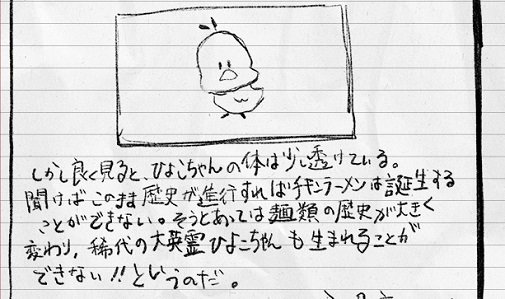 しかし良く見ると、ひよこちゃんの体は少し透けている。
聞けばこのまま歴史が進行すればチキンラーメンは誕生する
ことができない。そうとあっては麺類の歴史が大きく
変わり、稀代の大英霊ひよこちゃんも生まれることが
できない!!というのだ。